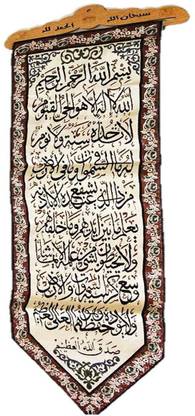 سبحان الله الحمد لله
بسم الله الرحمن الرحيم
الله لا إله إلا هو الحي القيوم
لا تأخذه سنة ولا نوم
له ما في السموات وما في الأرض
من ذا الذي يشفع عنده إلا بإذنه
يعلم ما بين أيديهم وما خلفهم
ولا يحيطون بشيء من علمه إلا بما شاء
وسع كرسيه السموات والأرض
ولا يؤده حفظهما وهو العلي العظيم
صدق الله العظيم